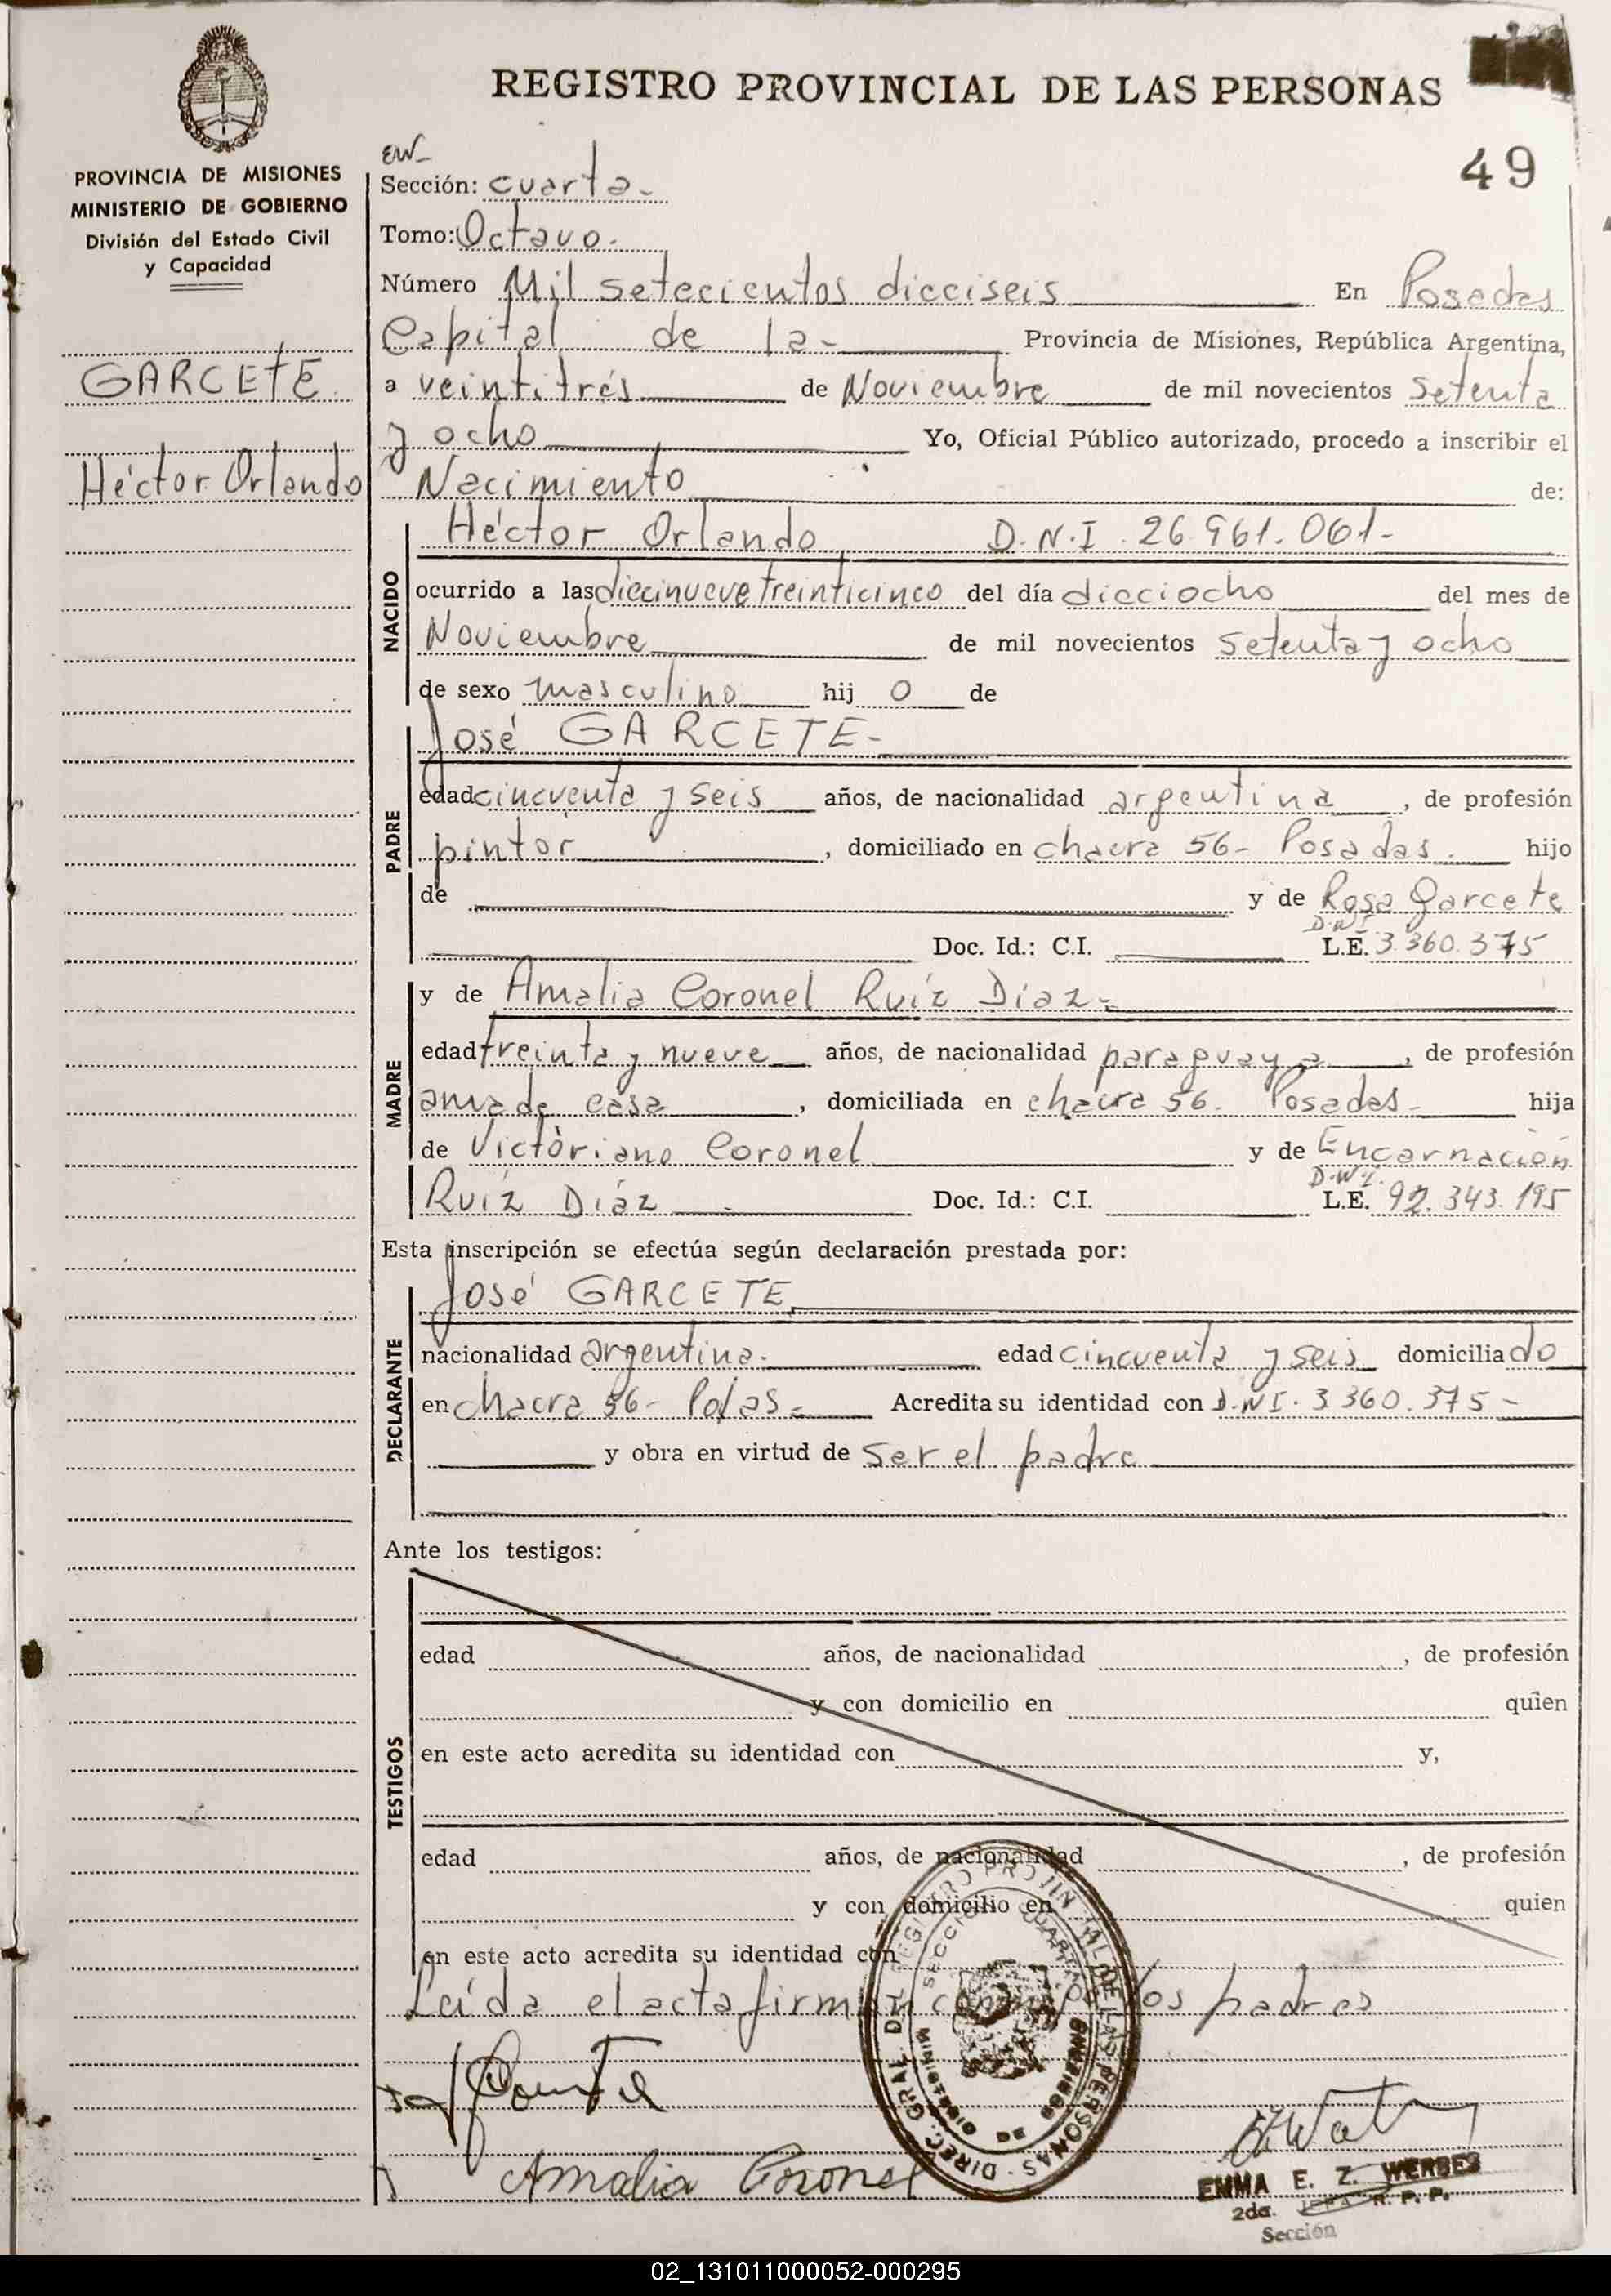 REGISTRO PROVINCIAL DE LAS PERSONAS
49
PROVINCIA DE MISIONES
MINISTERIO DE GOBIERNO
División del Estado Civil
y Capacidad
GARCETE
Héctor Orlando
Sección: cuarta-
Tomo: Octavo.
Número Mil setecientos dieciseis En Posadas
Capital de la- Provincia de Misiones, República Argentina,
a veintitrés de Noviembre de mil novecientos setenta
y ocho Yo, Oficial Público autorizado, procedo a inscribir el
Nacimiento de:
NACIDO
Héctor Orlando D.N.I. 26.961.061-
ocurrido a las diecinueve treinticinco del día dieciocho del mes de
Noviembre de mil novecientos setenta y ocho
de sexo masculino hij o de
PADRE
José GARCETE-
edad cincuenta y seis años, de nacionalidad argentina, de profesión
pintor, domiciliado en chacra 56- Posadas. hijo
de y de Rosa Garcete
D.N.I
Doc. Id.: C.I. L.E. 3.360.375
MADRE
y de Amalia Coronel Ruíz Díaz-
edad treinta y nueve años, de nacionalidad paraguaya, de profesión
ama de casa, domiciliada en chacra 56. Posadas- hija
de Victoriano Coronel y de Encarnación
D.N.I.
Ruíz Díaz Doc. Id.: C.I. L.E. 92.343.195
Esta inscripción se efectúa según declaración prestada por:
DECLARANTE
José GARCETE
nacionalidad argentina. edad cincuenta y seis domicilia do
en chacra 56- Pdas- Acredita su identidad con D.N.I. 3.360.375-
y obra en virtud de ser el padre
Ante los testigos:
TESTIGOS
edad años, de nacionalidad , de profesión
y con domicilio en quien
en este acto acredita su identidad con y,
edad años, de nacionalidad , de profesión
y con domicilio en quien
en este acto acredita su identidad con
Leída el acta firman los padres
DIREC. GRAL. DEL REGISTRO PROVINCIAL DE LAS PERSONAS
SECCION CUARTA
MINISTERIO DE GOBIERNO
Amalia Coronel
EMMA E. Z. WERBES
2da. JEFA R. P. P.
Sección
02_131011000052-000295